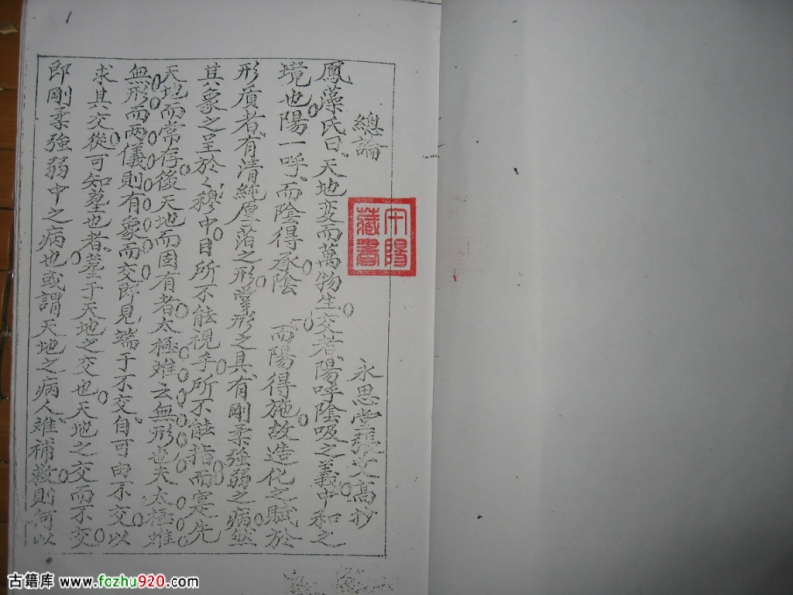 1
總論
永思堂張文高抄
鳳藻氏曰天地变而萬物生交者陽呼陰吸之義中和之
境也陽一呼而陰得承陰 而陽得施故造化之賦於
形质者有清純厚薄之形掌形之具有剛柔強弱之病然
其象之呈於穆穆中目所不能視手所不能指而寔先
天地而常存後天地而固有者太極难云無形也夫太極雖
無形而两儀則有象而交即見端于不交自可由不交以
求其交從可知墓也者墓于天地之交也天地之交而不交
即剛柔強弱中之病也或謂天地之病人难補救則何以
古籍库 www.fozhu920.com